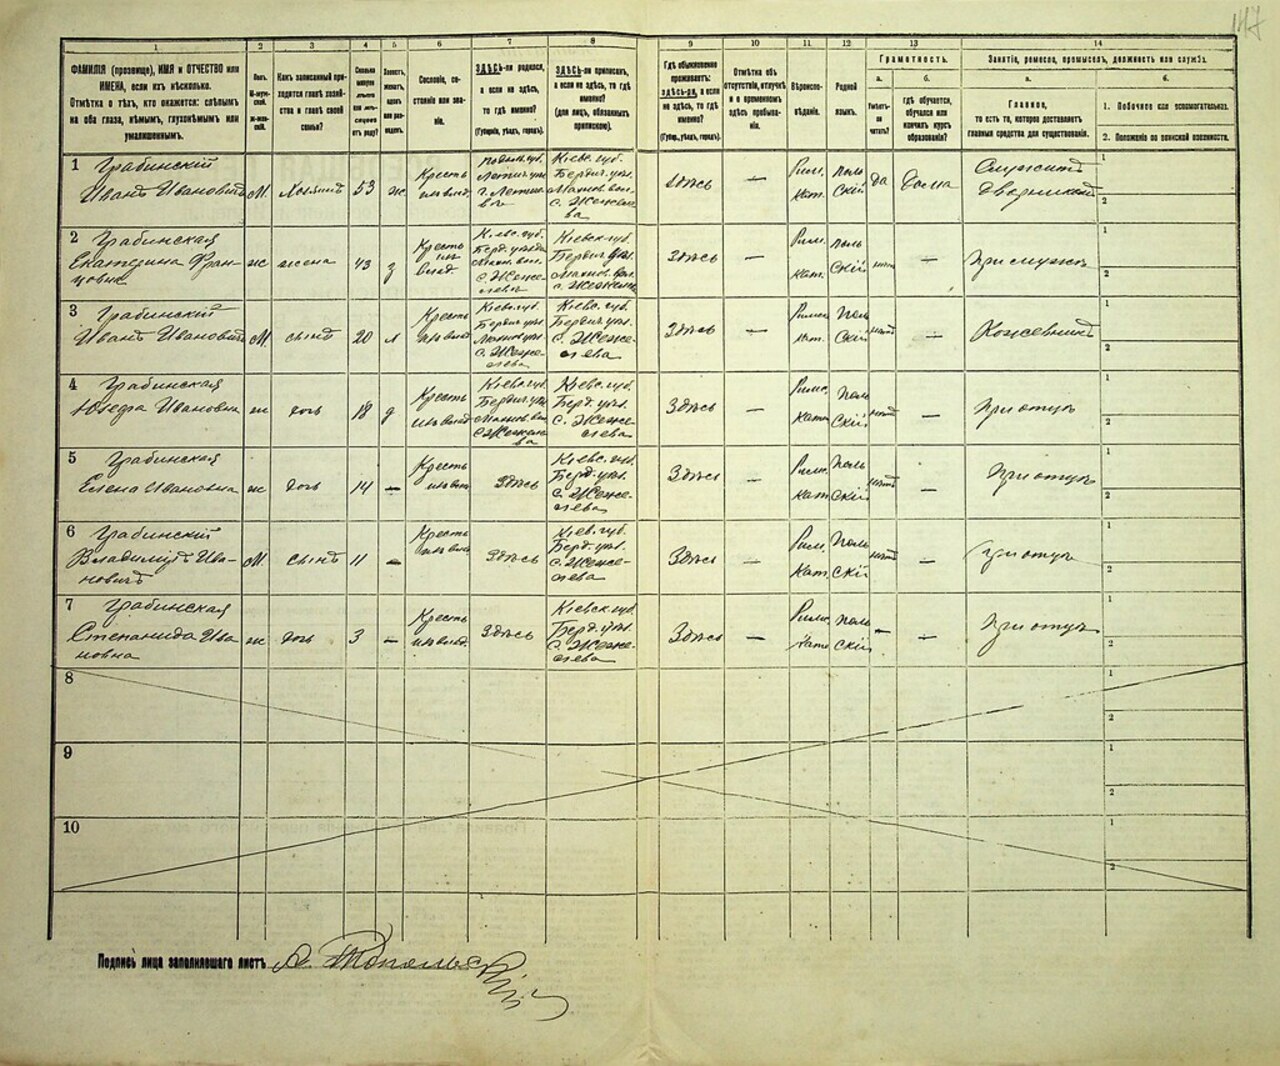 147
1 2 3 4 5 6 7 8 9 10 11 12 13 14
ФАМИЛІЯ (прозвище), ИМЯ и ОТЧЕСТВО или
ИМЕНА, если ихъ нѣсколько.
Отмѣтка о тѣхъ, кто окажется: слѣпымъ
на оба глаза, нѣмымъ, глухонѣмымъ или
умалишеннымъ.
Полъ.
М-мужской.
Ж-женскій.
Какъ записанный при-
ходится главѣ хозяй-
ства и главѣ своей
семьи?
Сколько
минуло
лѣтъ
или мѣ-
сяцевъ
отъ роду?
Холостъ,
женатъ,
вдовъ
или раз-
веденъ.
Сословіе, со-
стояніе или зва-
ніе.
ЗДѢСЬ-ли родился,
а если не здѣсь,
то гдѣ именно?
(Губернія, уѣздъ, городъ).
ЗДѢСЬ-ли приписанъ,
а если не здѣсь, то гдѣ
именно?
(для лицъ, обязанныхъ
припискою).
Гдѣ обыкновенно
проживаетъ:
здѣсь-ли, а если
не здѣсь, то гдѣ
именно?
(Губер., уѣздъ, городъ).
Отмѣтка объ
отсутствіи, отлучкѣ
и о временномъ
здѣсь пребыва-
ніи.
Вѣроиспо-
вѣданіе.
Родной
языкъ.
Грамотность.
а.
Умѣетъ-
ли
читать?
б.
гдѣ обучается,
обучался или
кончилъ курсъ
образованія?
Занятіе, ремесло, промыселъ, должность или служба.
а.
Главное,
то есть то, которое доставляетъ
главныя средства для существованія.
б.
1. Побочное или вспомогательное.
2. Положеніе по воинской повинности.
1 Грабинскій
Иванъ Ивановичъ
М.
Хозяинъ
53
ж
Кресть
изъ влад.
Подольс. губ.
Летич. уѣз.
г. Летиче
въ
Кіевс. губ.
Бердич. уѣз.
Махнов. вол.
с. Жежеле
ва
Здѣсь
—
Рим.
Кат.
Поль
скій
да
дома
Служитъ
дворникомъ
1
2
2 Грабинская
Екатерина Фран-
цовна
ж
жена
43
з
Кресть
изъ
влад.
Кіевс. губ.
Берд. уѣзда
Махн. вол.
с. Жеже
лева
Кіевск. губ.
Бердич. уѣз.
Махнов. вол.
с. Жежелев
Здѣсь
—
Рим.
Кат.
Поль
скій
нѣтъ
—
При мужѣ
1
2
3 Грабинскій
Иванъ Ивановичъ
М.
сынъ
20
х
Кресть
изъ влад.
Кіевс. губ.
Бердич. уѣз.
Махнов. вол.
с. Жеже-
лева
Кіевс. губ.
Бердич. уѣз.
с. Жеже-
лева
Здѣсь
—
Римс.
Кат.
Поль
скій
нѣтъ
—
Кожевникъ
1
2
4 Грабинская
Юзефа Ивановна
ж
дочь
18
д
Кресть
изъ влад
Кіевс. губ.
Бердич. уѣз
Махнов. вол
с. Жежеле
ва
Кіевс. губ.
Берд. уѣз.
с. Жеже-
лева.
Здѣсь
—
Римс.
Кат.
Поль
скій
нѣтъ
—
При отцѣ
1
2
5 Грабинская
Елена Ивановна
ж
дочь
14
—
Кресть
изъ вла
Здѣсь
Кіевс. губ.
Берд. уѣз.
с. Жеже-
лева
Здѣсь
—
Римс.
Кат
Поль
скій
нѣтъ
—
При отцѣ
1
2
6 Грабинскій
Владиміръ Ива-
новичъ
М.
сынъ
11
—
Кресть
изъ вла.
Здѣсь
Кіев. губ.
Берд. уѣз.
с. Жеже-
лева
Здѣсь
—
Рим.
Кат.
Поль
скій
нѣтъ
—
При отцѣ
1
2
7 Грабинская
Степанида Ива
новна
ж
дочь
3
—
Кресть
изъ влад.
Здѣсь
Кіевск. губ.
Берд. уѣз.
с. Жеже-
лева
Здѣсь
—
Римс
Кат
Поль
скій
—
—
При отцѣ
1
2
8
1
2
9
1
2
10
1
2
Подпись лица заполнявшаго листъ А. Топольскій